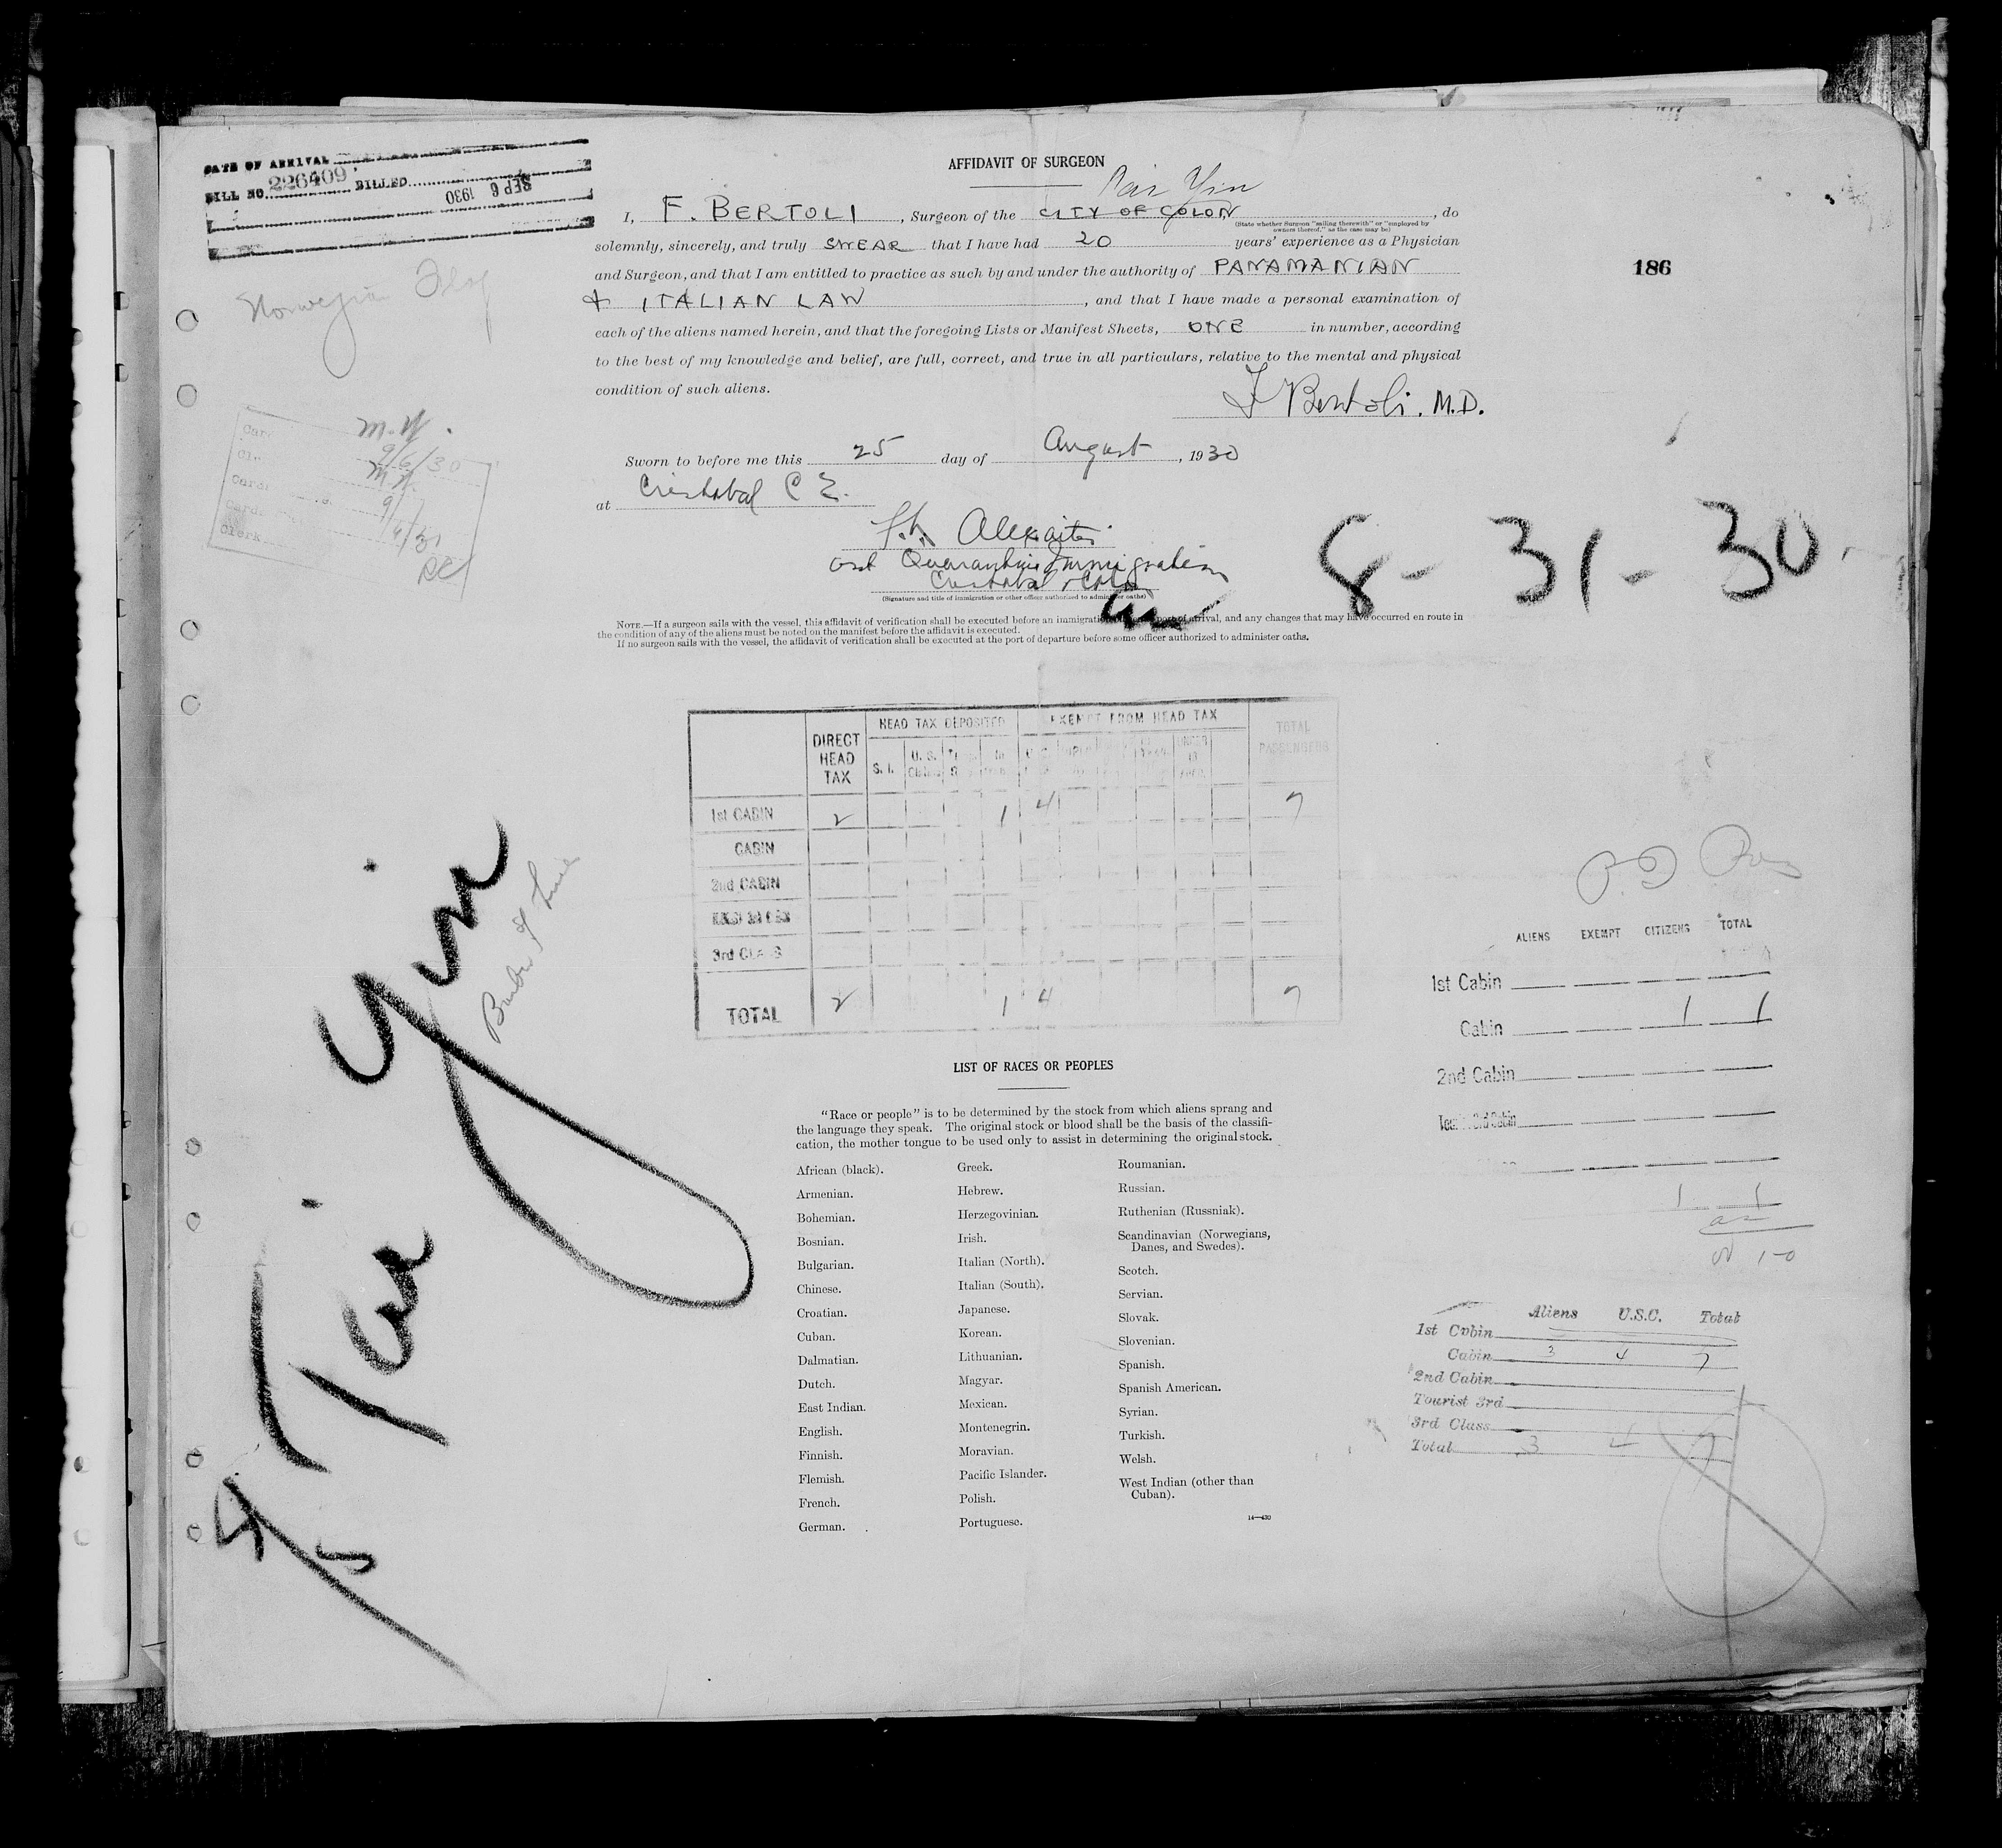 DATE OF ARRIVAL
BILL NO 226409 BILLED SEP 6 1930
Norwegian Flag
M.N.
9/6/30
M.N.
Clerk
AFFIDAVIT OF SURGEON
Tai Yin
I, F. BERTOLI, Surgeon of the CITY OF COLON, do
(State whether Surgeon "sailing therewith" or "employed by
owners thereof," as the case may be)
solemnly, sincerely, and truly SWEAR that I have had 20 years' experience as a Physician
and Surgeon, and that I am entitled to practice as such by and under the authority of PANAMANIAN
+ ITALIAN LAW, and that I have made a personal examination of
each of the aliens named herein, and that the foregoing Lists or Manifest Sheets, ONE in number, according
to the best of my knowledge and belief, are full, correct, and true in all particulars, relative to the mental and physical
condition of such aliens.
F Bertoli. M.D.
186
Sworn to before me this 25 day of August, 1930
at Cristobal C Z.
Quarantine Immigration
Cristobal
(Signature and title of immigration or other officer authorized to administer oaths)
8-31-30.
NOTE.—If a surgeon sails with the vessel, this affidavit of verification shall be executed before an immigration port of arrival, and any changes that may have occurred en route in
the condition of any of the aliens must be noted on the manifest before the affidavit is executed.
If no surgeon sails with the vessel, the affidavit of verification shall be executed at the port of departure before some officer authorized to administer oaths.
DIRECT HEAD TAX
HEAD TAX DEPOSITED
EXEMPT FROM HEAD TAX
TOTAL PASSENGERS
S. I.
U. S.
1st CABIN 2 1 4 7
CABIN
2nd CABIN
3rd CLASS
TOTAL 2 1 4 7
Tai Yin
Barber S Line
5
LIST OF RACES OR PEOPLES
"Race or people" is to be determined by the stock from which aliens sprang and
the language they speak. The original stock or blood shall be the basis of the classifi-
cation, the mother tongue to be used only to assist in determining the original stock.
African (black).
Armenian.
Bohemian.
Bosnian.
Bulgarian.
Chinese.
Croatian.
Cuban.
Dalmatian.
Dutch.
East Indian.
English.
Finnish.
Flemish.
French.
German.
Greek.
Hebrew.
Herzegovinian.
Irish.
Italian (North).
Italian (South).
Japanese.
Korean.
Lithuanian.
Magyar.
Mexican.
Montenegrin.
Moravian.
Pacific Islander.
Polish.
Portuguese.
Roumanian.
Russian.
Ruthenian (Russniak).
Scandinavian (Norwegians,
Danes, and Swedes).
Scotch.
Servian.
Slovak.
Slovenian.
Spanish.
Spanish American.
Syrian.
Turkish.
Welsh.
West Indian (other than
Cuban).
14—430
ALIENS EXEMPT CITIZENS TOTAL
1st Cabin
Cabin 1 1
2nd Cabin
1 1
Aliens U.S.C. Total
1st Cabin
Cabin 3 4 7
2nd Cabin
Tourist 3rd
3rd Class
Total 3 4 7